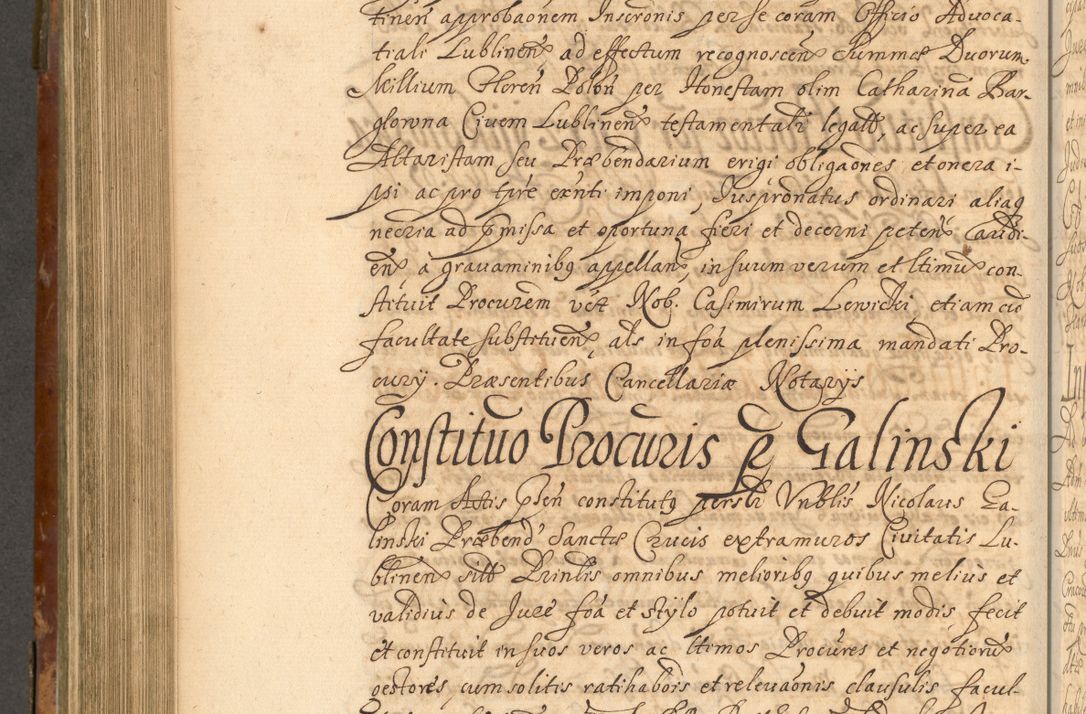 tinen approbaonem Inscronis per se coram Officio Advoca-
tiali Lublinen ad effectum recognoscen Summæ Duorum
Millium Floren Polon per Honestam olim Catharina Bar-
glowna Civem Lublinen testamentali legatt, ac super ea
Altaristam seu Præbendarium erigi obligaones et onera i-
psi ac pro tpre exnti imponi, Juspronatus ordinari aliaq
necria ad pmissa et oportuna fieri et decerni peten Caudi-
en à grauaminibq appellan, in suum verum et ltimu con-
stituit Procurem vt Nob. Casimirum Lewicki etiam cu
facultate substituen, als in foa plenissima mandati Pro-
cury. Præsentibus Cancellariæ Notaryis
Constituo Procuris p Galinski
Coram Actis psen constitutq persli Vnblis Nicolaus Ga-
linski Præbend Sanctæ Crucis extra muros Civitatis Lu-
blinen sitt Prinlis omnibus melioribq quibus melius et
validius de Jure foa et stylo potuit et debuit modis fecit
et constituit in suos veros ac ltimos Procures et negotioru
gestores cum solitis ratihabois et releuaonis clausulis facul-